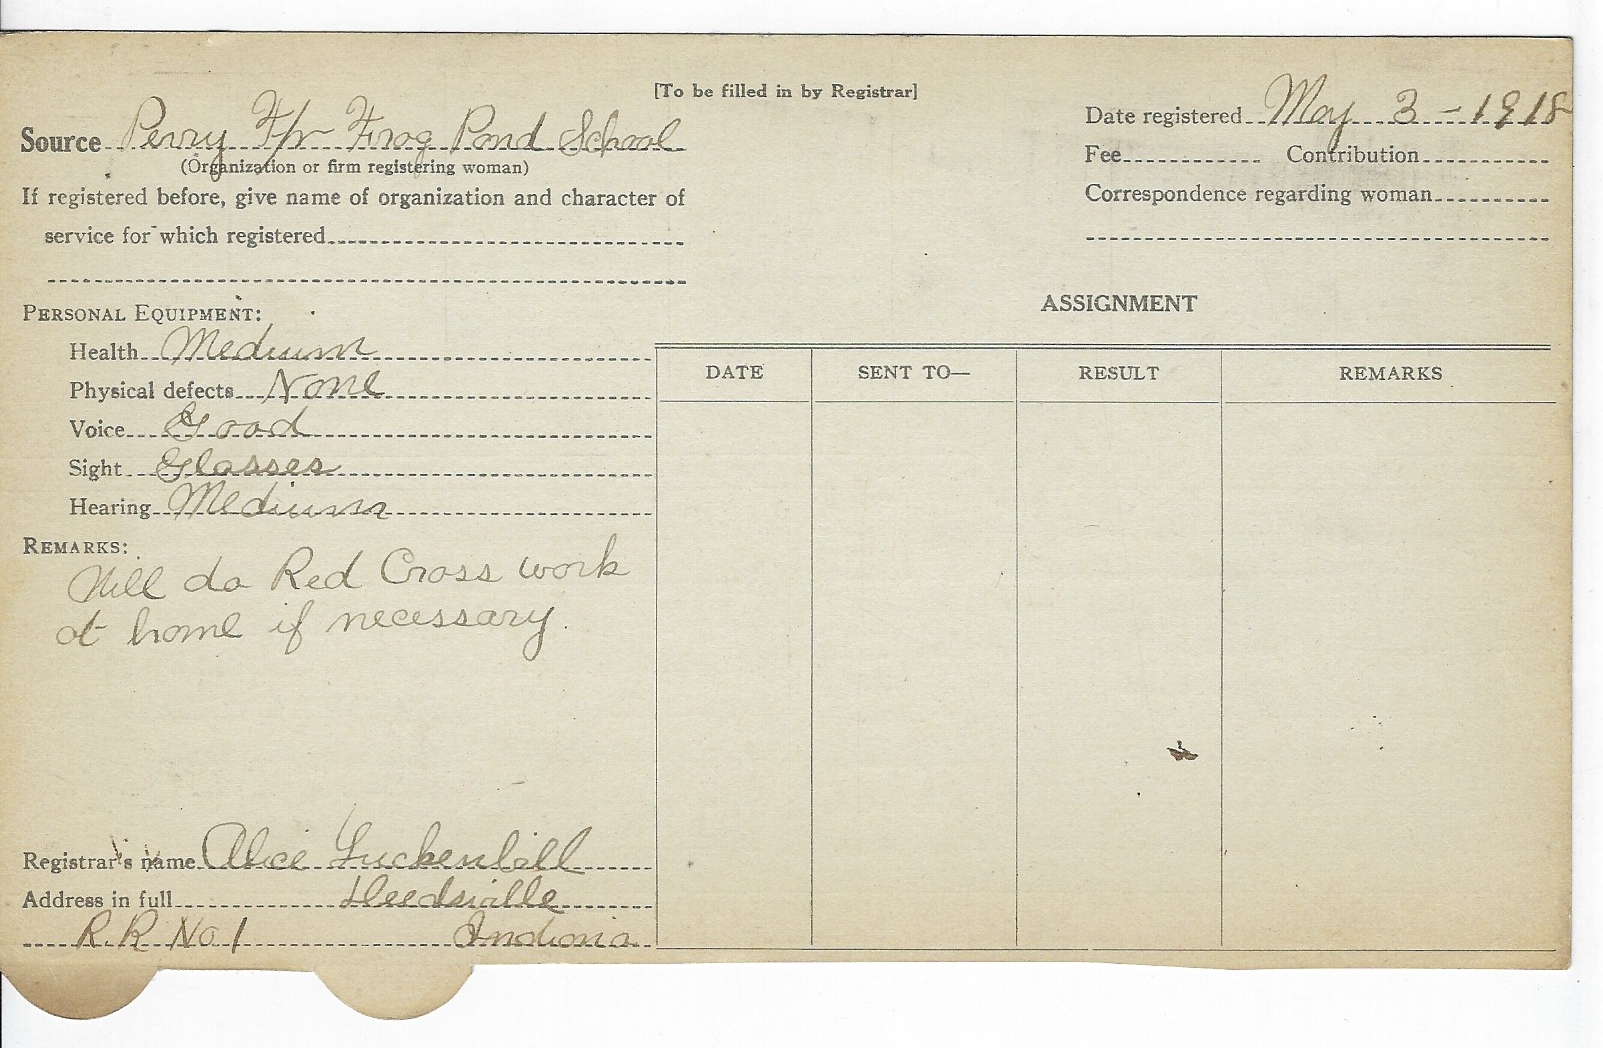 [To be filled in by Registrar]
Source Perry T/p Frog Pond School
(Organization or firm registering woman)
If registered before, give name of organization and character of
service for which registered
Date registered May 3 - 1918
Fee Contribution
Correspondence regarding woman
PERSONAL EQUIPMENT:
Health Medium
Physical defects None
Voice Good
Sight Glasses
Hearing Medium
REMARKS:
Will do Red Cross work
at home if necessary.
Registrar's name Alice Luckenbill
Address in full Deedsville
R.R No 1 Indiana
ASSIGNMENT
DATE SENT TO— RESULT REMARKS